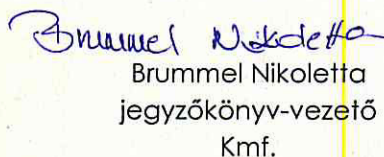 Brummel Nikoletta
Brummel Nikoletta
jegyzőkönyv-vezető
Kmf.